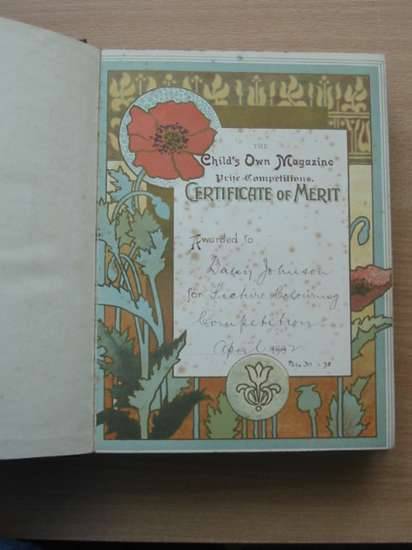 THE
Child's Own Magazine
Prize Competitions.
CERTIFICATE OF MERIT
Awarded to
Johnson
for Picture Colouring
Competition
April